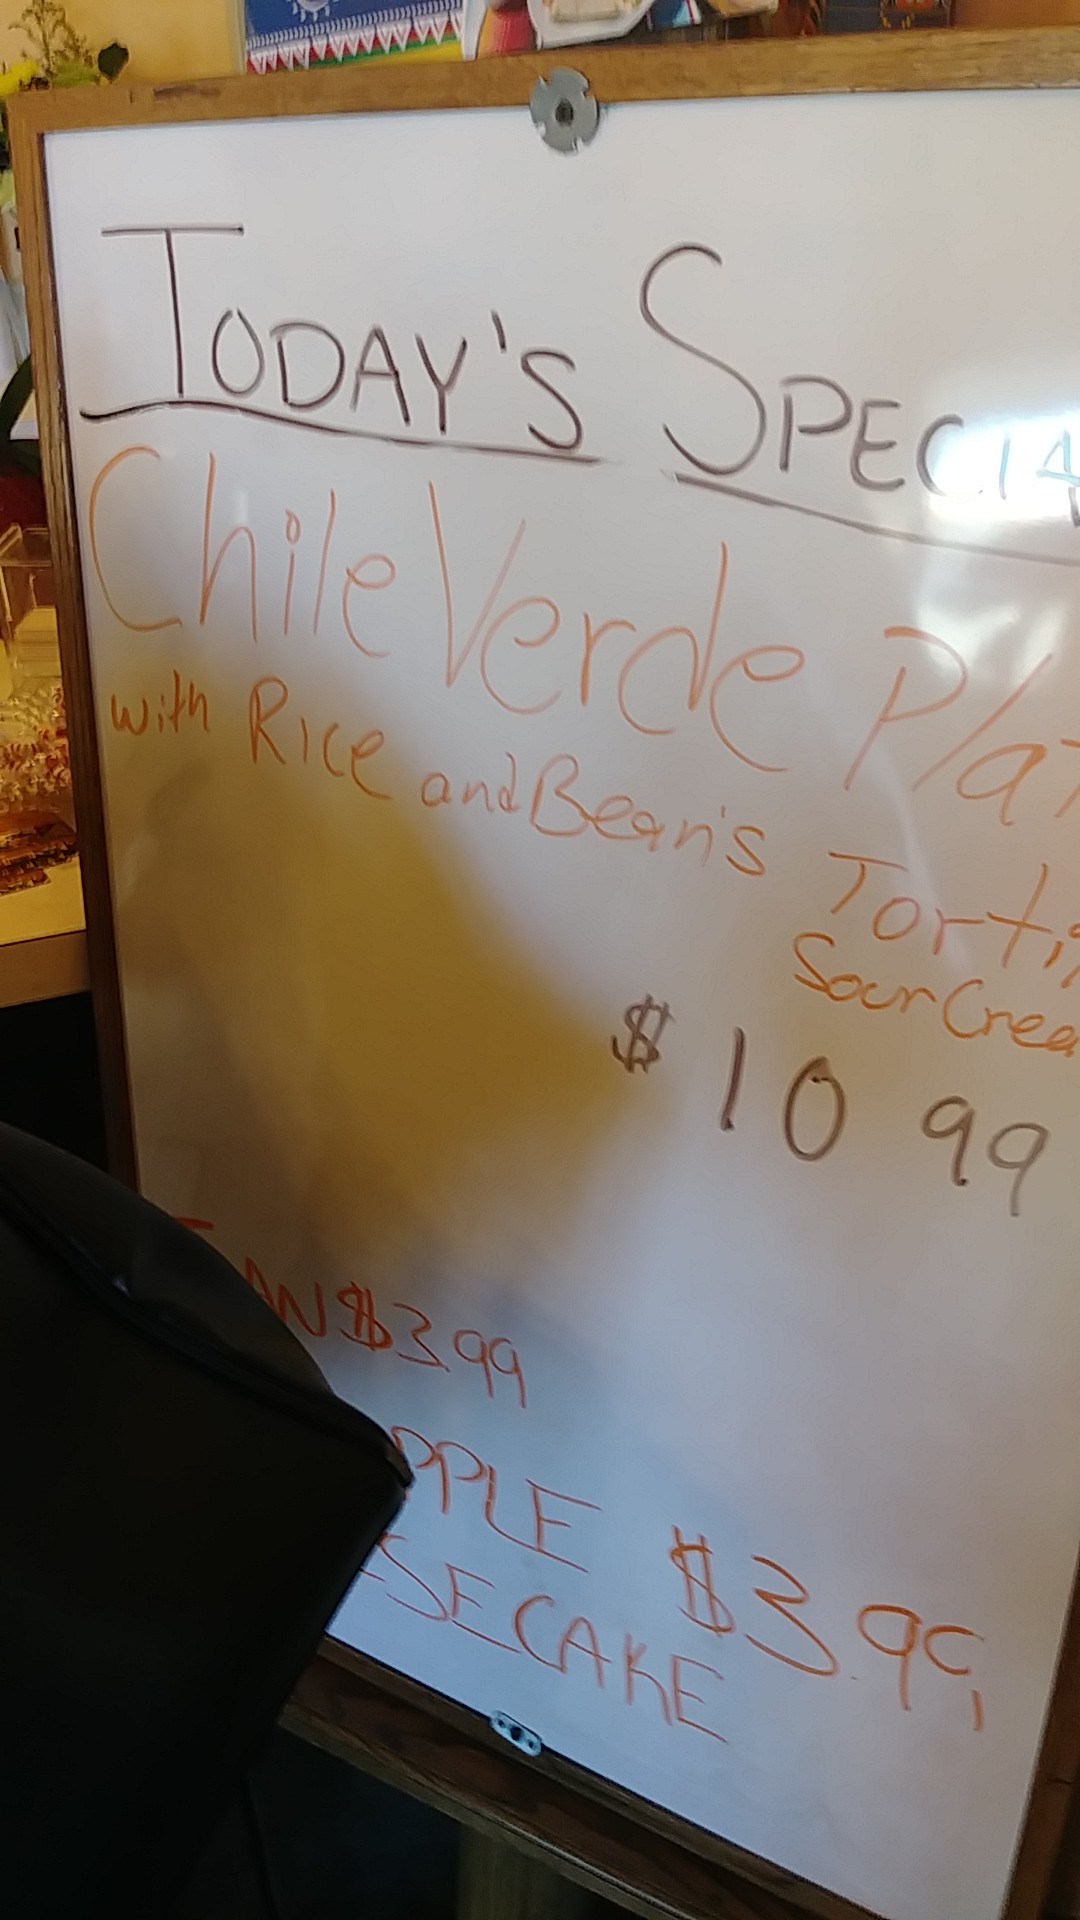 TODAY'S SPECIA
Chile Verde Plat
with Rice and Bean's Torti
Sour Crea
$10 99
AN $3.99
PPLE $3.99
ESECAKE